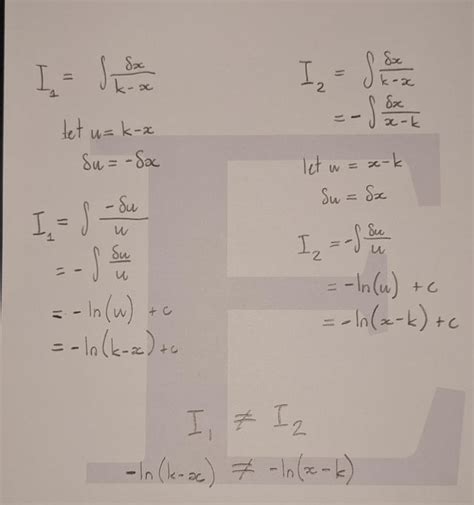 I₁ = ∫ δx/(k-x)
let u = k-x
δu = -δx
I₁ = ∫ -δu/u
= -∫ δu/u
= -ln(u) + c
= -ln(k-x) + c
I₂ = ∫ δx/(k-x)
= -∫ δx/(x-k)
let u = x-k
δu = δx
I₂ = -∫ δu/u
= -ln(u) + c
= -ln(x-k) + c
I₁ ≠ I₂
-ln(k-x) ≠ -ln(x-k)
E